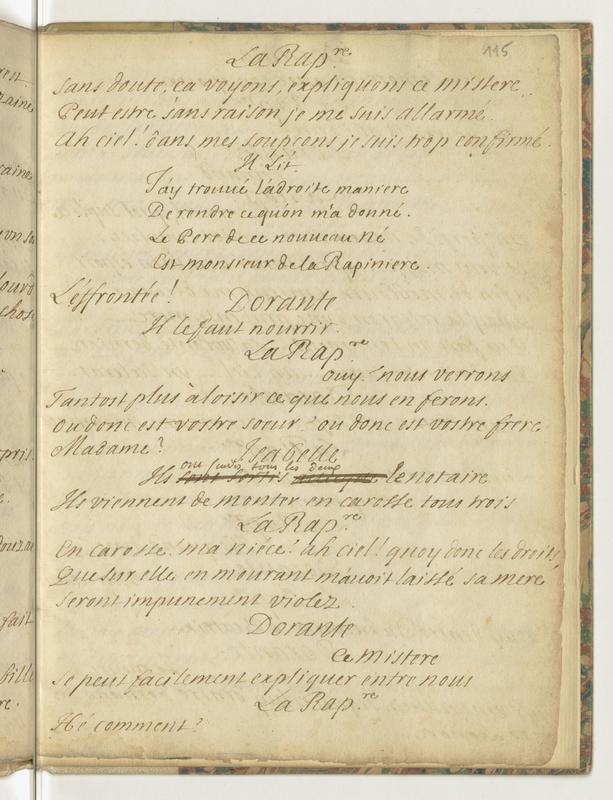 115
La Rap.re
Sans doute, ca voyons, expliquons ce mistere
Peut estre sans raison je me suis allarmé.
Ah ciel! dans mes soupçons je suis trop confirmé.
Il Lit.
J'ay trouvé l'adroite maniere
De rendre ce qu'on m'a donné.
Le Pere de ce nouveau né
Est monsieur de la Rapiniere.
L'effrontée!
Dorante
Il le faut nourrir.
La Rap.re
Ouy! nous verrons
Tantost plus à loisir ce que nous en ferons.
Ou donc est vostre soeur? ou donc est vostre frere
Madame?
Isabelle
ont suivis tous les deux
Ils sont sortis le notaire
Ils viennent de monter en carosse tous trois
La Rap.re
En carosse! ma niéce! ah ciel! quoy donc les droits
Que sur elle en mourant m'avoit laissé sa mere
Seront impunement violez.
Dorante
Ce Mistere
Se peut facilement expliquer entre nous
La Rap.re
Hé comment?